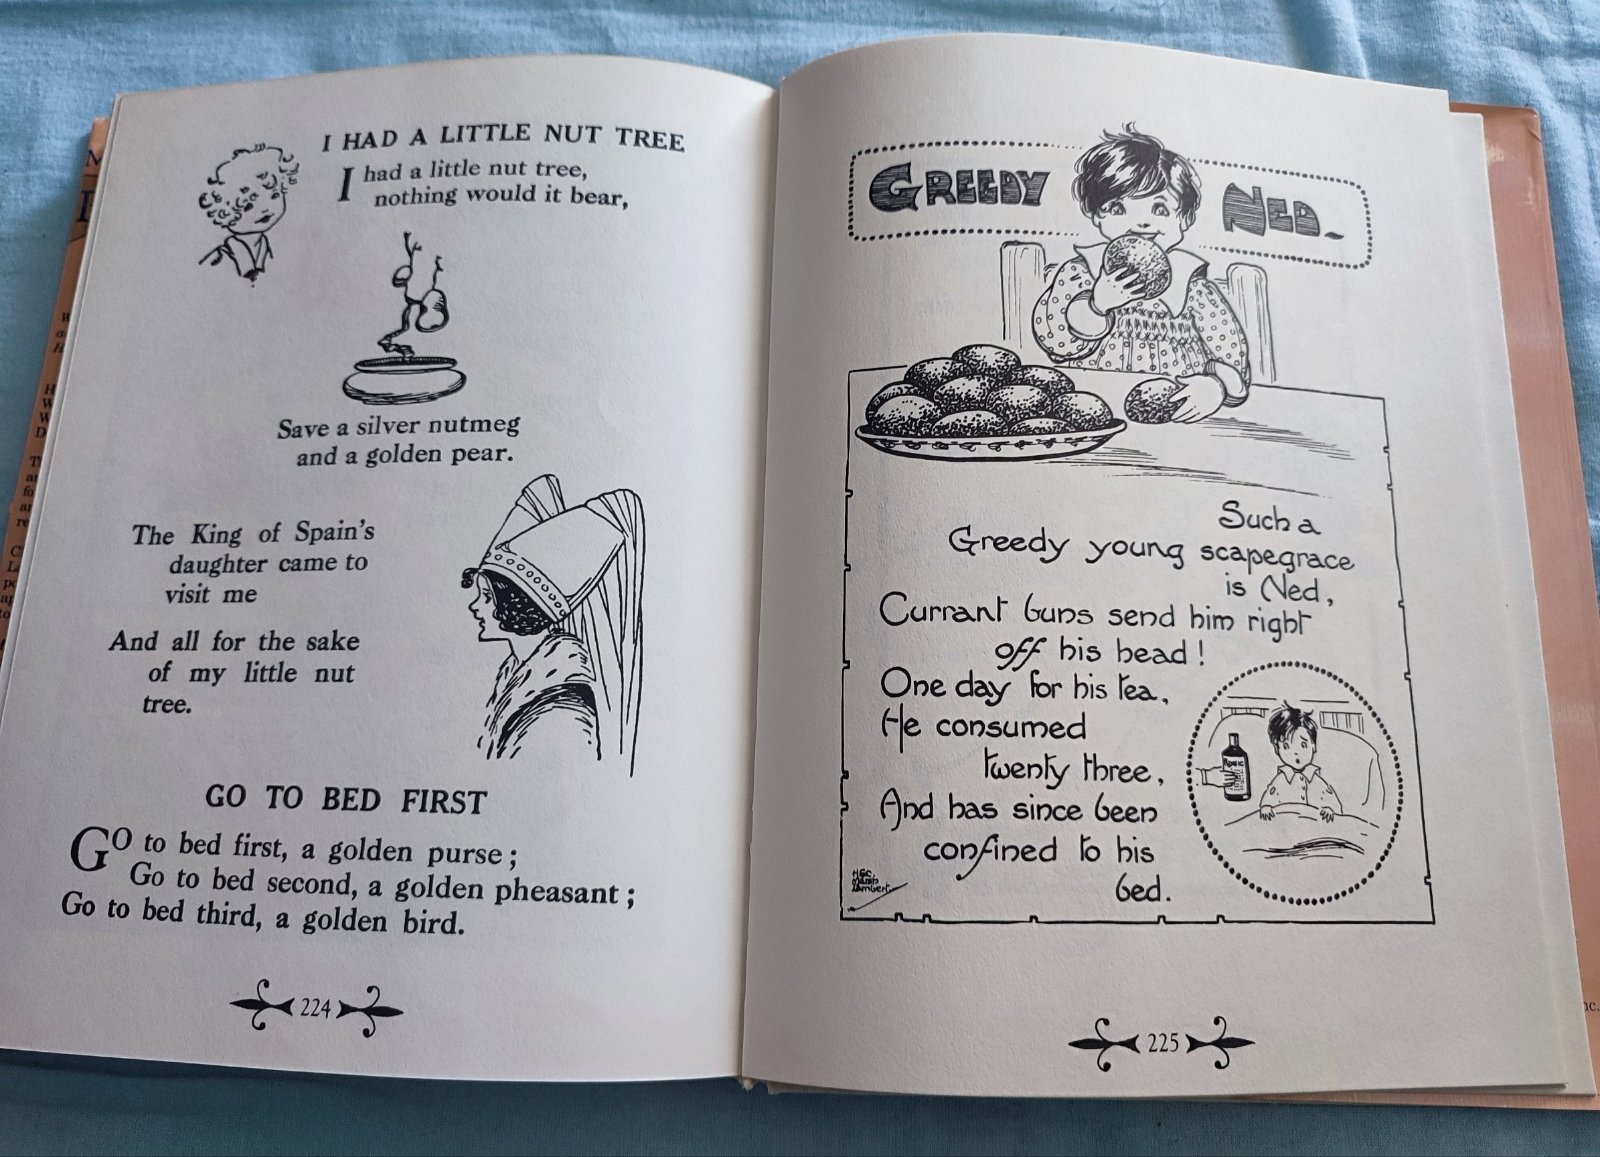 I HAD A LITTLE NUT TREE
I had a little nut tree,
nothing would it bear,
Save a silver nutmeg
and a golden pear.
The King of Spain's
daughter came to
visit me
And all for the sake
of my little nut
tree.
GO TO BED FIRST
GO to bed first, a golden purse;
Go to bed second, a golden pheasant;
Go to bed third, a golden bird.
224
GREEDY NED.
Such a
Greedy young scapegrace
is Ned,
Currant buns send him right
off his head!
One day for his tea,
He consumed
twenty three,
And has since been
confined to his
bed.
Marsh
Lambert
225